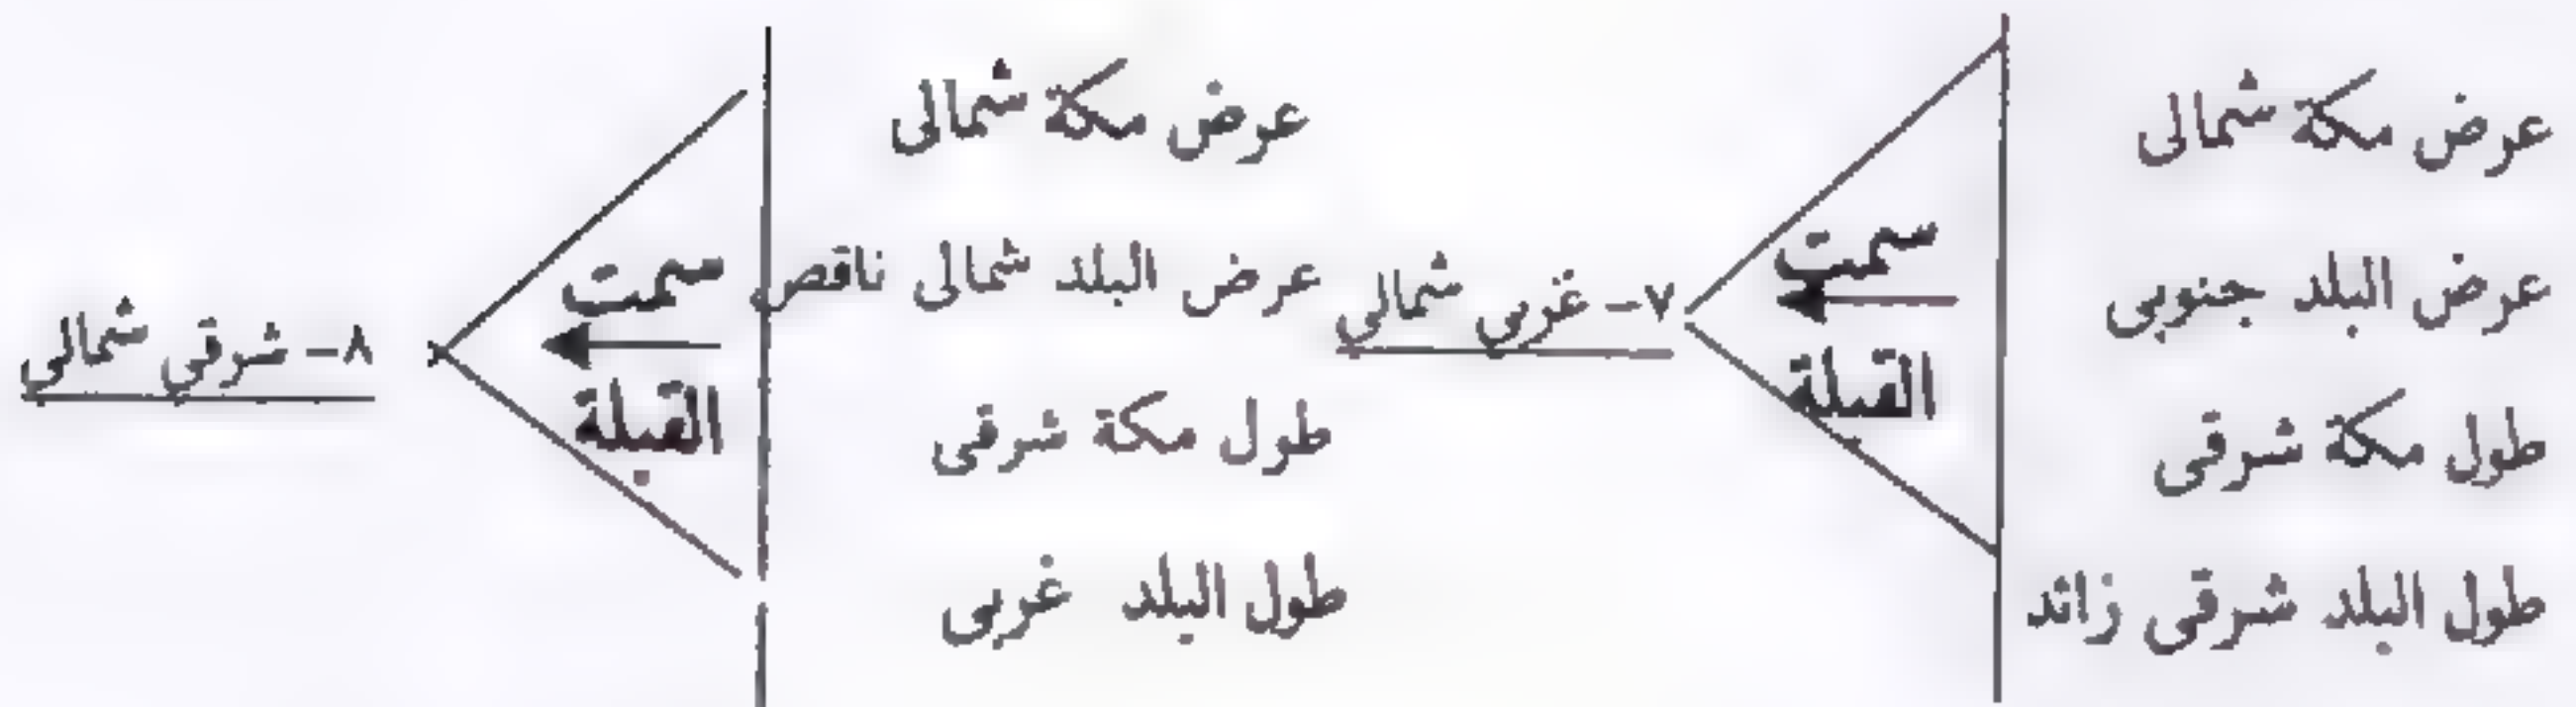 عرض مكة شمالى
عرض البلد جنوبى
طول مكة شرقى
طول البلد شرقى زائد
سمت
القبلة
٧- غربي شمالي
عرض مكة شمالى
عرض البلد شمالى ناقص
طول مكة شرقى
طول البلد غربى
سمت
القبلة
٨- شرقي شمالي